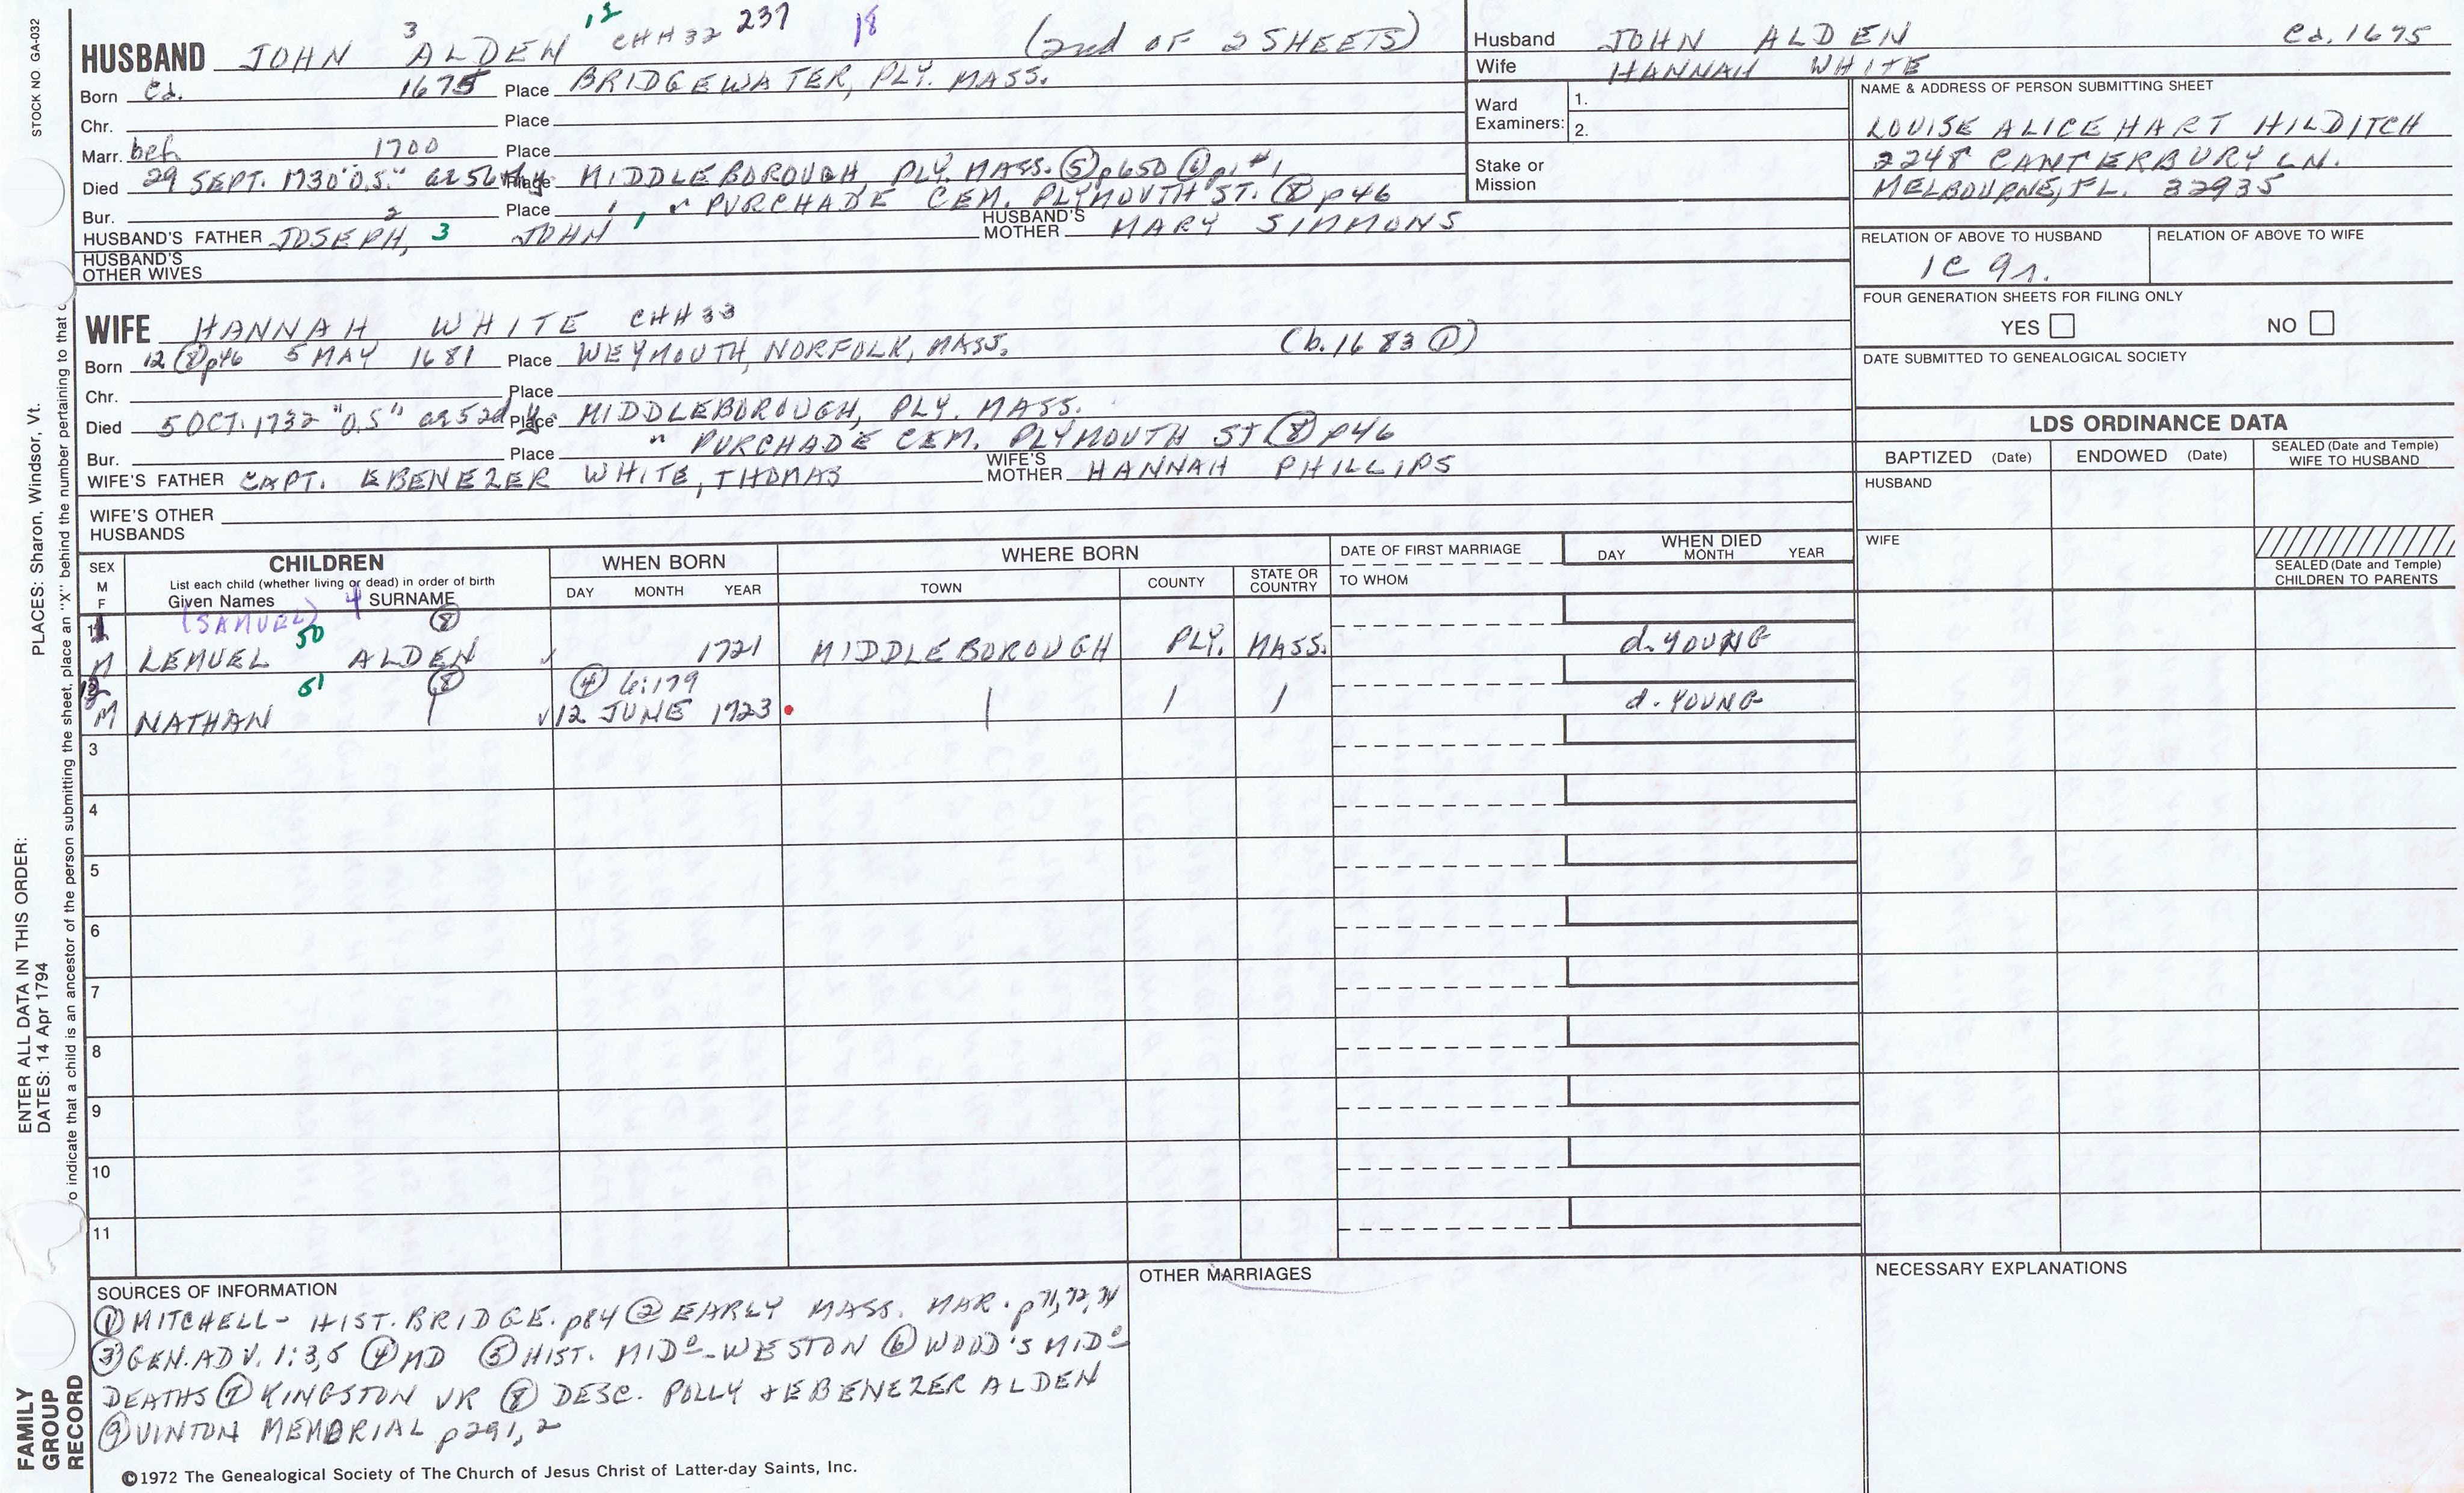 STOCK NO. GA-032
PLACES: Sharon, Windsor, Vt.
ENTER ALL DATA IN THIS ORDER:
DATES: 14 Apr 1794
o indicate that a child is an ancestor of the person submitting the sheet, place an "X" behind the number pertaining to that c
FAMILY
GROUP
RECORD
HUSBAND JOHN 3 ALDEN 12 CHH32 237 18 (2nd OF 2 SHEETS)
Born Ca. 1675 Place BRIDGEWATER, PLY. MASS.
Chr. Place
Marr. bef. 1700 Place
Died 29 SEPT. 1730 "O.S." Place MIDDLEBOROUGH PLY. MASS. ⑤ p650 ⑥ p1 #1
Bur. Place " PURCHADE CEM. PLYMOUTH ST. ⑧ p46
HUSBAND'S FATHER JOSEPH, 2 3 JOHN 1 1 HUSBAND'S MOTHER MARY SIMMONS
HUSBAND'S
OTHER WIVES
WIFE HANNAH WHITE CHH33
Born 12 ⑧ p46 5 MAY 1681 Place WEYMOUTH, NORFOLK, MASS. (b. 1683 ①)
Chr. Place
Died 5 OCT. 1732 "O.S" Place MIDDLEBOROUGH, PLY. MASS.
Bur. Place " PURCHADE CEM. PLYMOUTH ST ⑧ p46
WIFE'S FATHER CAPT. EBENEZER WHITE, THOMAS WIFE'S MOTHER HANNAH PHILLIPS
WIFE'S OTHER
HUSBANDS
Husband JOHN ALDEN Ca. 1675
Wife HANNAH WHITE
Ward
Examiners: 1.
2.
Stake or
Mission
NAME & ADDRESS OF PERSON SUBMITTING SHEET
LOUISE ALICE HART HILDITCH
2248 CANTERBURY LN.
MELBOURNE, FL. 32935
RELATION OF ABOVE TO HUSBAND RELATION OF ABOVE TO WIFE
1C 9r.
FOUR GENERATION SHEETS FOR FILING ONLY
YES NO
DATE SUBMITTED TO GENEALOGICAL SOCIETY
LDS ORDINANCE DATA
BAPTIZED (Date) ENDOWED (Date) SEALED (Date and Temple) WIFE TO HUSBAND
HUSBAND
WIFE
SEALED (Date and Temple)
CHILDREN TO PARENTS
SEX M F CHILDREN WHEN BORN WHERE BORN DATE OF FIRST MARRIAGE WHEN DIED
List each child (whether living or dead) in order of birth
Given Names SURNAME DAY MONTH YEAR TOWN COUNTY STATE OR COUNTRY TO WHOM DAY MONTH YEAR
(SAMUEL) 4 50 ⑧
M LEMUEL ALDEN ✓ 1721 MIDDLEBOROUGH PLY. MASS. d. YOUNG
12 51 ⑧ ④ 6:179
M NATHAN ✓ 12 JUNE 1723 d. YOUNG
3
4
5
6
7
8
9
10
11
SOURCES OF INFORMATION
① MITCHELL - HIST. BRIDGE. p84 ② EARLY MASS. MAR. p71,72,74
③ GEN. ADV. 1:3,5 ④ MD ⑤ HIST. MIDº - WESTON ⑥ WOOD'S MIDº
DEATHS ⑦ KINGSTON VR ⑧ DESC. POLLY & EBENEZER ALDEN
⑨ VINTON MEMORIAL p291, 2
OTHER MARRIAGES
NECESSARY EXPLANATIONS
©1972 The Genealogical Society of The Church of Jesus Christ of Latter-day Saints, Inc.